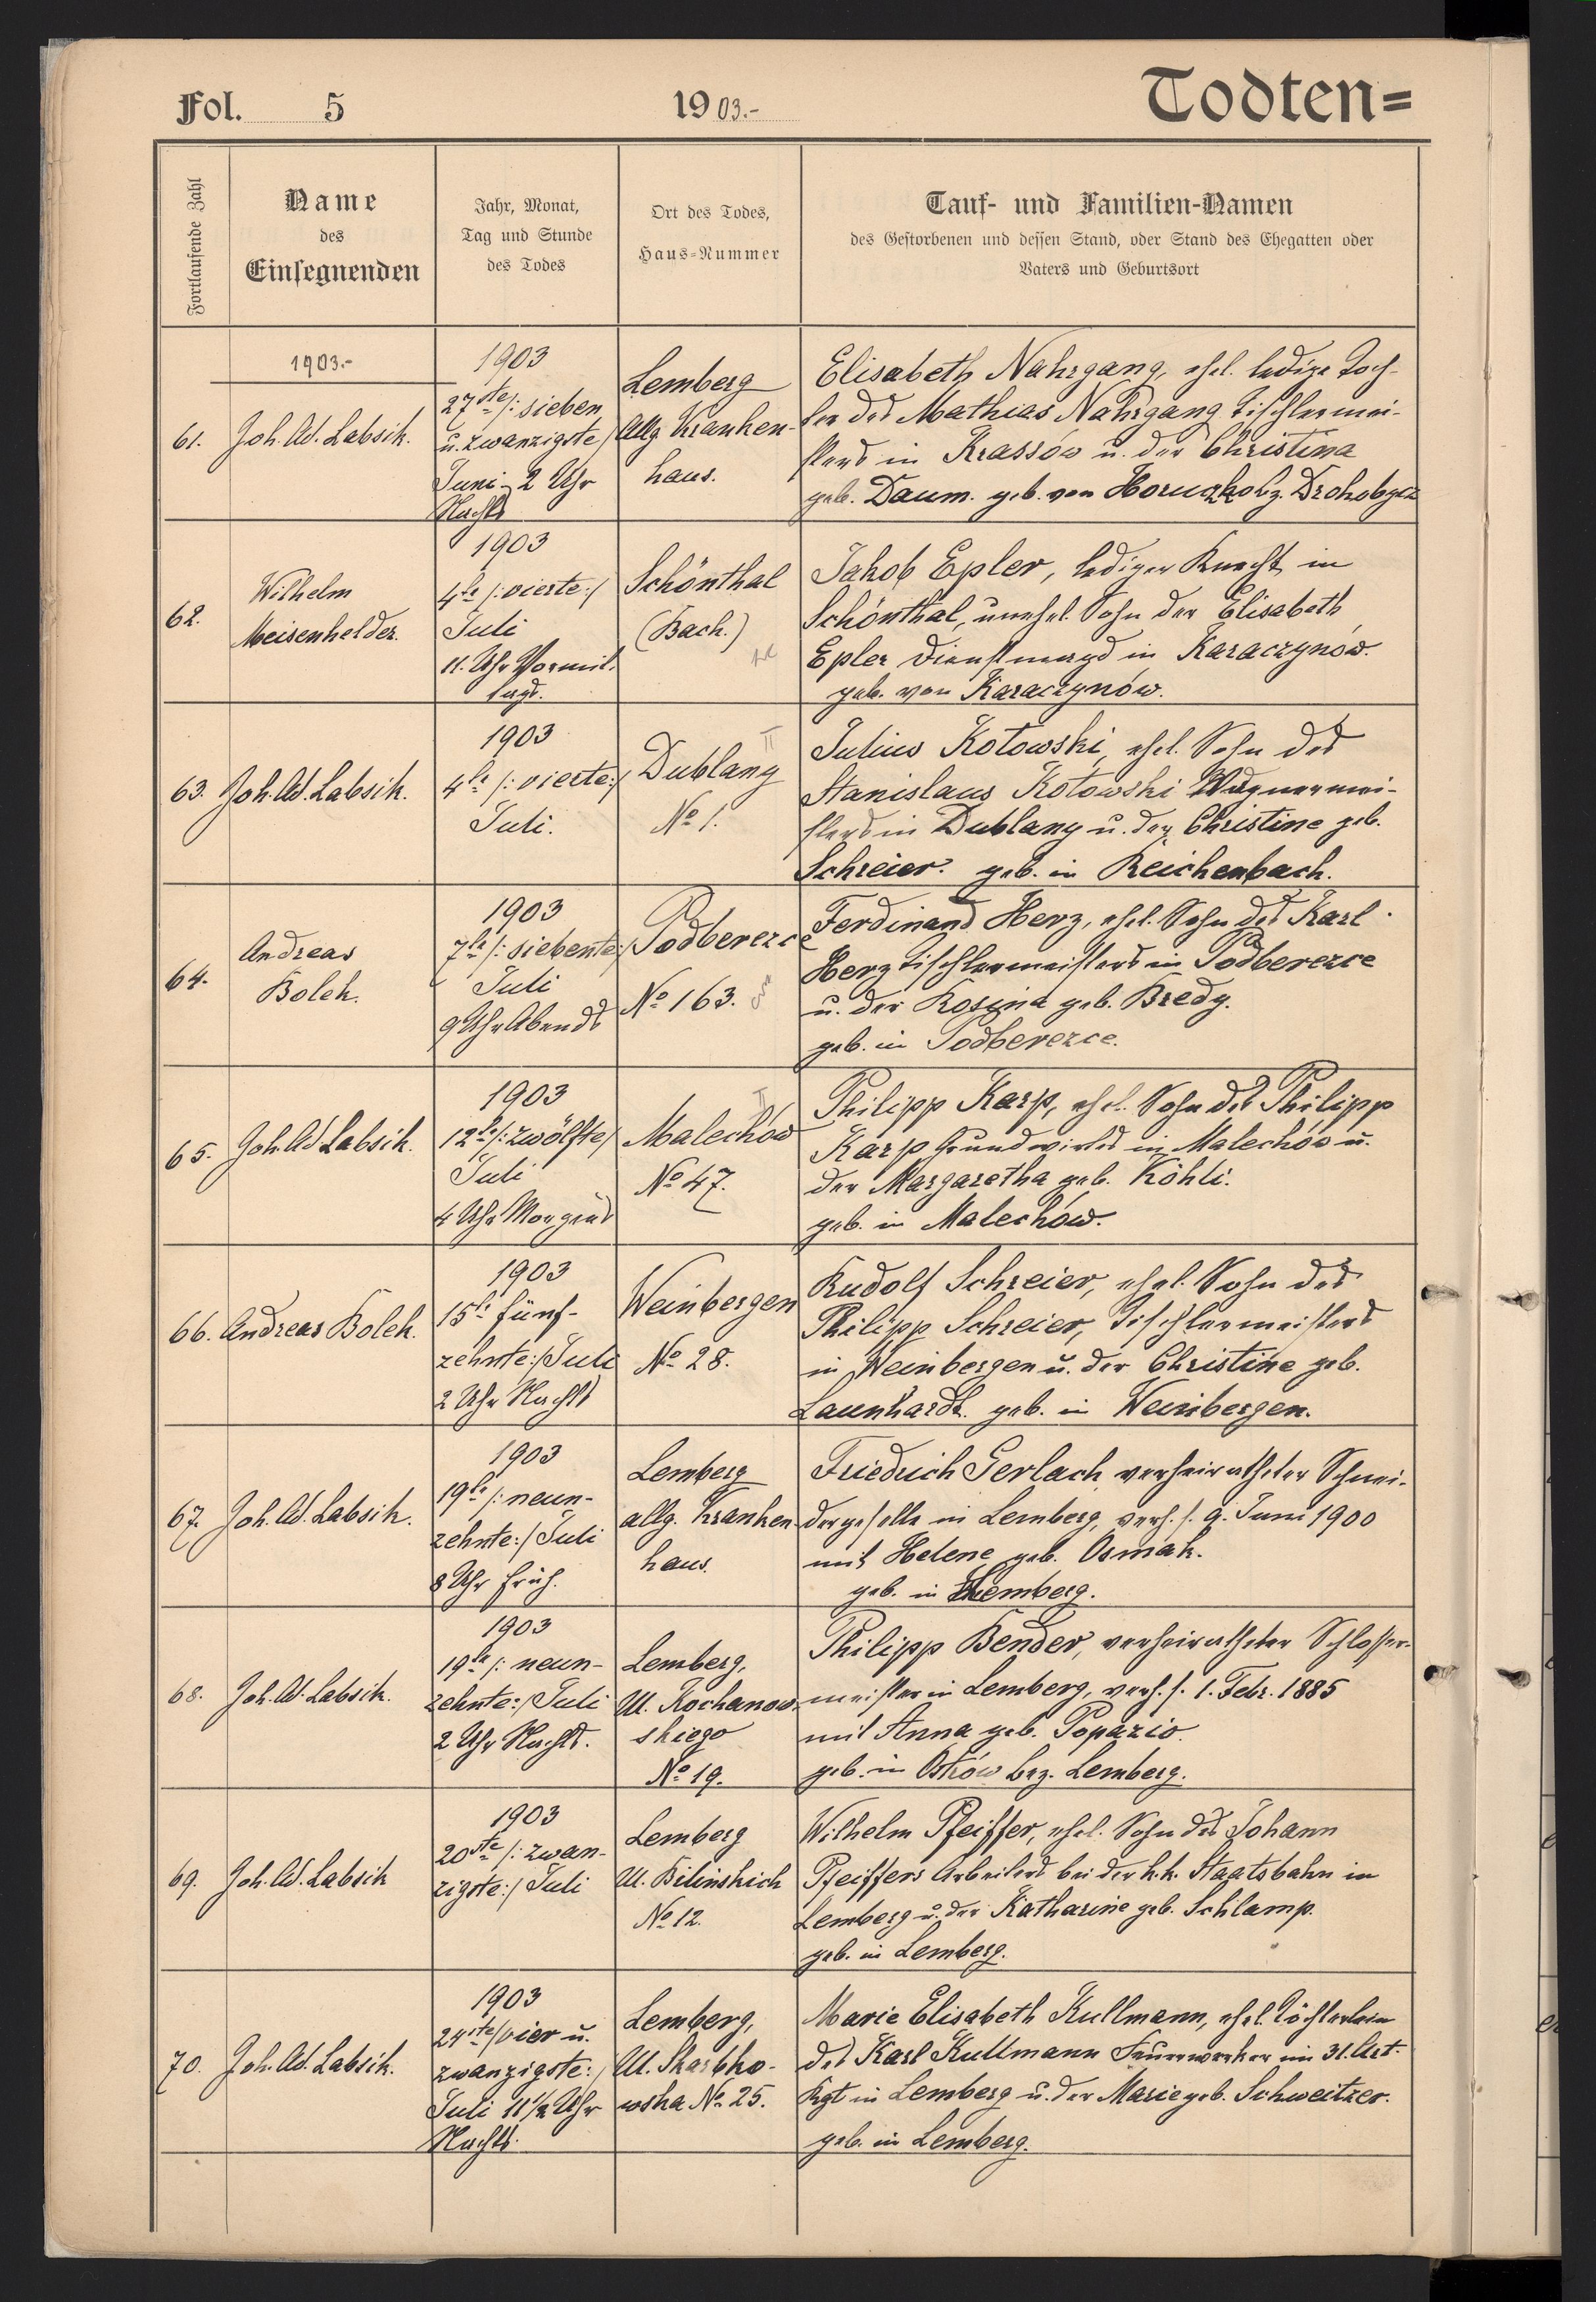 Fol. 5
1903.-
Todten=
Fortlaufende Zahl
Name
des
Einsegnenden
Jahr, Monat,
Tag und Stunde
des Todes
Ort des Todes,
Haus-Nummer
Tauf- und Familien-Namen
des Gestorbenen und dessen Stand, oder Stand des Ehegatten oder
Vaters und Geburtsort
1903.-
61.
Joh. Ad. Labsik.
1903
27ste /: sieben
u. zwanzigste /
Juni - 2 Uhr
Nachts
Lemberg
Allg Kranken-
haus.
Elisabeth Nahrgang, ehel. ledige Toch-
ter des Mathias Nahrgang Tischlermei-
sters in Krassów u. der Christina
geb. Daum. geb. von Horuczko bz. Drohobycz
62.
Wilhelm
Meisenhelder.
1903
4te /: vierte :/
Juli
11. Uhr Vormit.
tags.
Schönthal
(Bach.)
Jakob Epler, lediger Knecht in
Schönthal, unehel. Sohn der Elisabeth
Epler Dienstmagd in Karaczynów.
geb. von Karaczynów.
63.
Joh. Ad. Labsik.
1903
4te /: vierte :/
Juli.
Dublany
No 1.
Julius Kotowski, ehel. Sohn des
Stanislaus Kotowski Wagnermei-
sters in Dublany u. der Christine geb.
Schreier. geb. in Reichenbach.
64.
Andreas
Bolek.
1903
7te /: siebente :/
Juli
9 Uhr Abends
Podberezce
No 163.
Ferdinand Herz, ehel. Sohn des Karl
Herz Tischlermeisters in Podberezce
u. der Rosina geb. Bredy.
geb. in Podberezce.
65.
Joh. Ad Labsik.
1903
12te /: zwölfte /
Juli
4 Uhr Morgens
Malechów
No 47.
Philipp Karp, ehel. Sohn des Philipp
Karp Grundwirtes in Malechów u.
der Margaretha geb. Köhli.
geb. in Malechów.
66.
Andreas Bolek.
1903
15te fünf-
zehnte :/ Juli
2 Uhr Nachts
Weinbergen
No 28.
Rudolf Schreier, ehel. Sohn des
Philipp Schreier, Tischlermeisters
in Weinbergen u. der Christine geb.
Launhardt. geb. in Weinbergen.
67.
Joh. Ad. Labsik.
1903
19te /: neun-
zehnte :/ Juli
8 Uhr früh.
Lemberg
allg. Kranken-
haus.
Friedrich Gerlach, verheiratheter Schnei-
dergeselle in Lemberg, verh. s. 9. Juni 1900
mit Helene geb. Osmak.
geb. in Lemberg.
68.
Joh. Ad. Labsik.
1903
19te /: neun-
zehnte :/ Juli
2 Uhr Nachts.
Lemberg,
Ul. Kochanow-
skiego
No 19.
Philipp Bender, verheiratheter Schlosser-
meister in Lemberg, verh. s. 1. Febr. 1885
mit Anna geb. Popazio.
geb. in Ostrów bez. Lemberg.
69.
Joh. Ad. Labsik
1903
20ste /: zwan-
zigste :/ Juli
Lemberg
Ul. Bilinskich
No 12.
Wilhelm Pfeiffer, ehel. Sohn des Johann
Pfeiffers Arbeiters bei der k.k. Staatsbahn in
Lemberg u. der Katharine geb. Schlamp.
geb. in Lemberg.
70.
Joh. Ad. Labsik.
1903
24ste / vier u.
zwanzigste :/
Juli 11 1/2 Uhr
Nachts.
Lemberg,
Ul. Skarbko-
wska No 25.
Marie Elisabeth Kullmann, ehel. Töchterlein
des Karl Kullmann Feuerwerker im 31. Art.
Rgt in Lemberg u. der Marie geb. Schweitzer.
geb. in Lemberg.